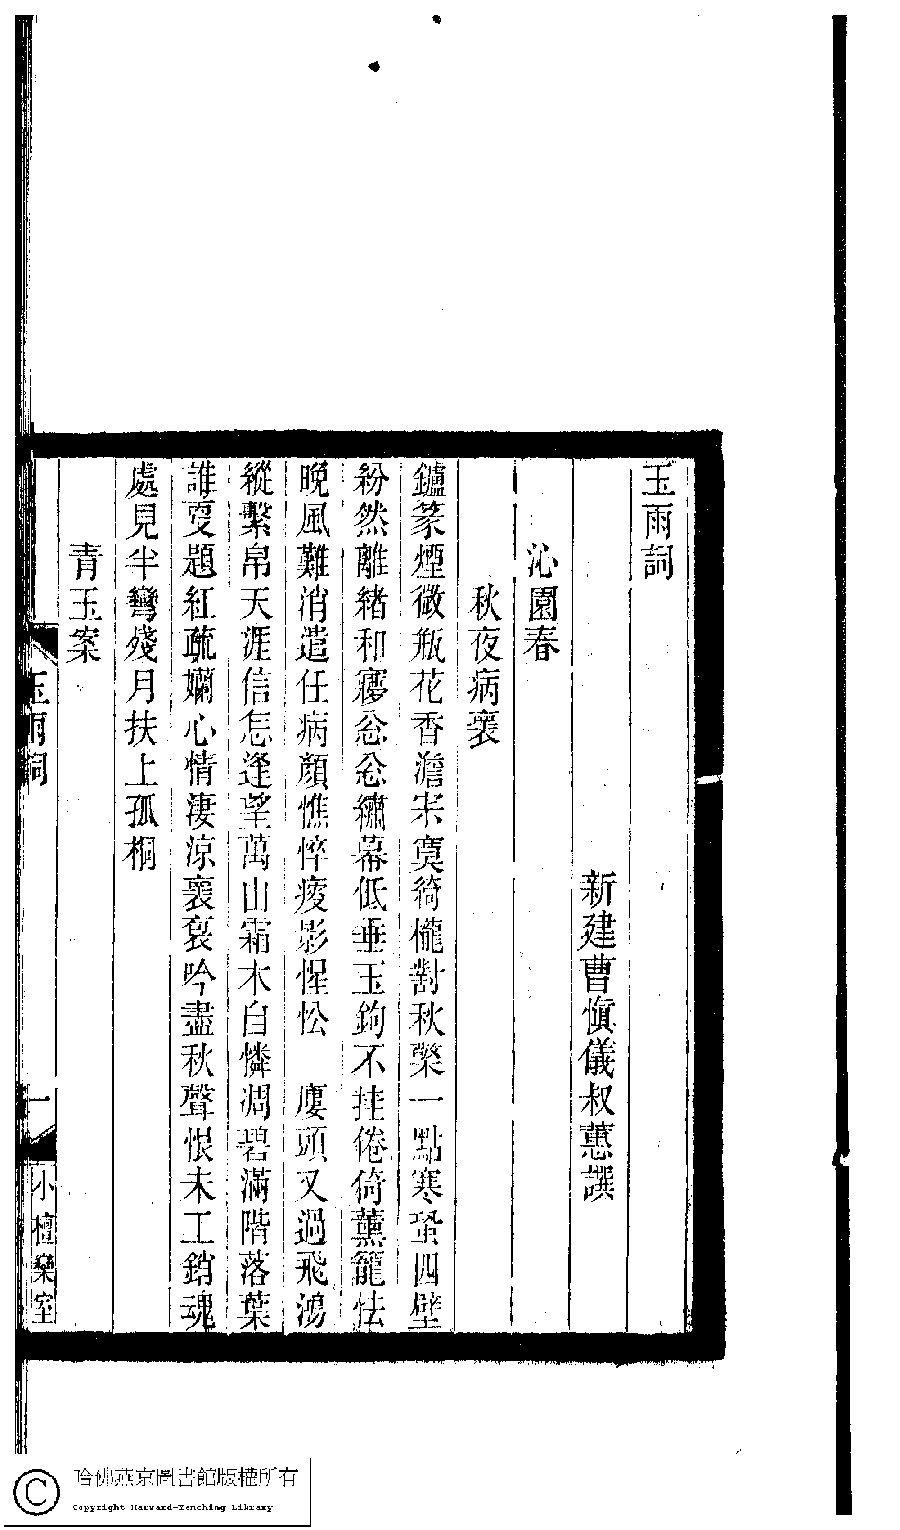 玉雨詞
新建曹慎儀叔蕙譔
沁園春
秋夜病褢
鑪篆煙微瓶花香澹宋寞綺櫳對秋檠一點寒蛩四壁
紛然離緒和瘳忩忩繡幕低垂玉鉤不挂倦倚薰籠怯
晚風難消遣任病顏憔悴痠影惺忪 廔頭又過飛鴻
縱繫帛天涯信怎逢望萬山霜木自憐凋碧滿階落葉
誰叓題紅疏嬾心情淒涼褢裛吟盡秋聲恨未工銷魂
處見半彎殘月扶上孤桐
青玉案
玉雨詞
一
小檀欒室
哈佛燕京圖書館版權所有
Copyright Harvard-Yenching Library